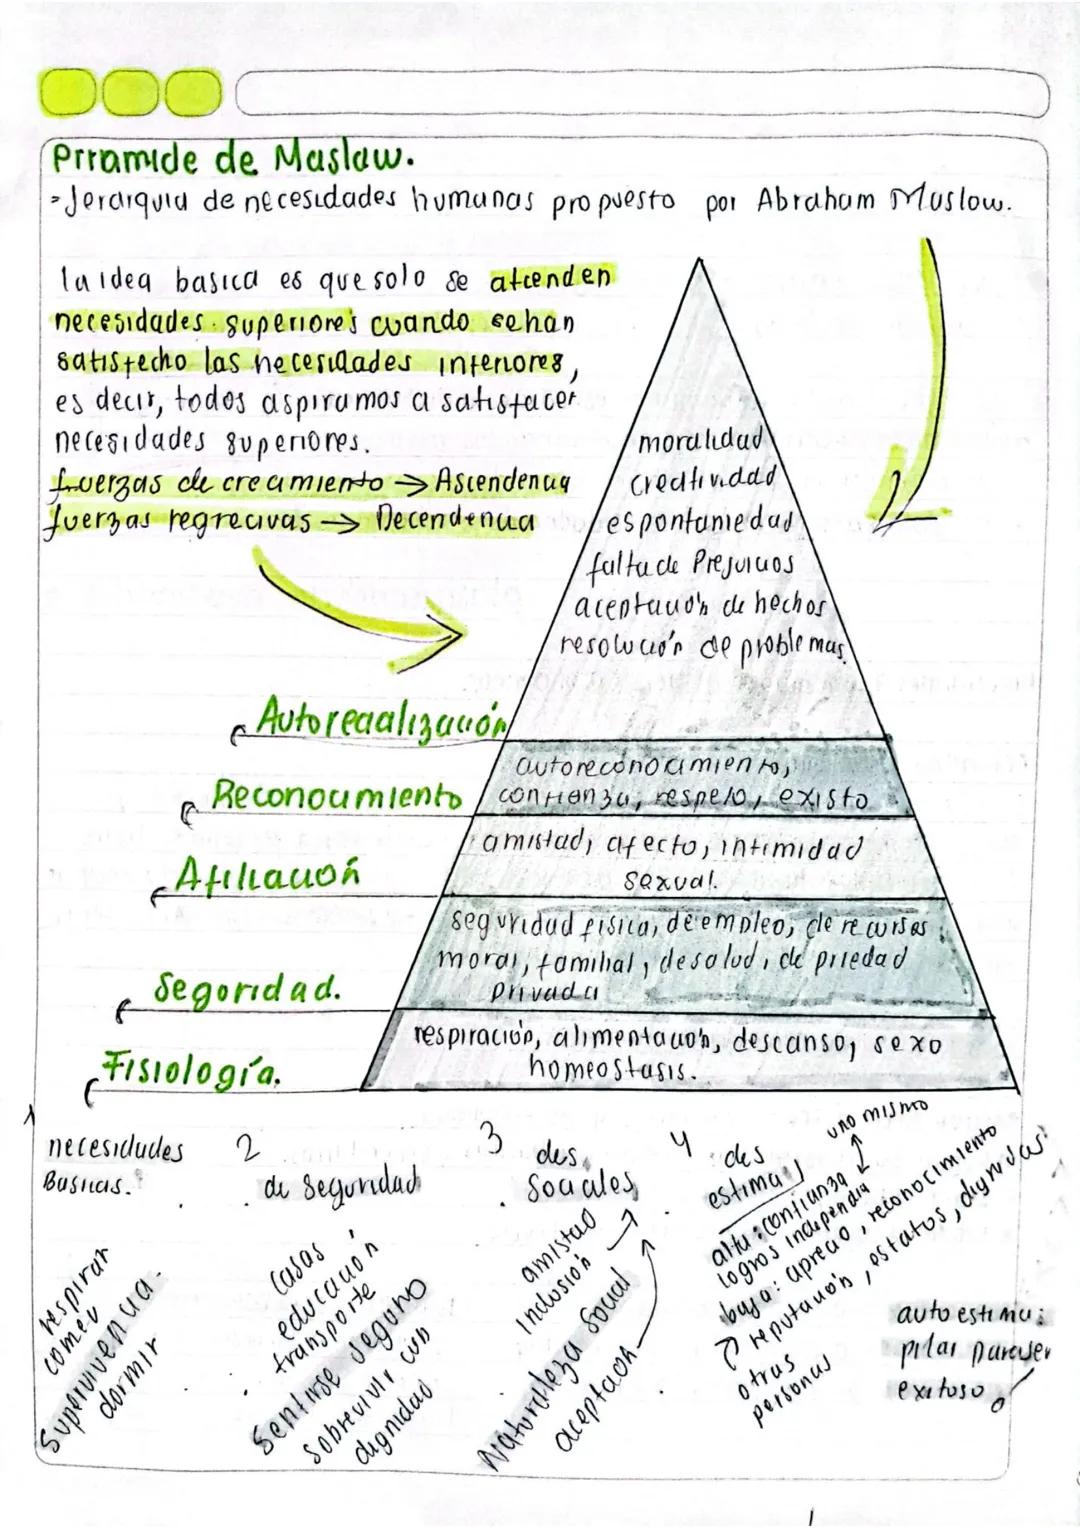 Prramide de Maslaw.
-Jerarquia de necesidades humanas propuesto por Abraham Maslow.
la idea basica es que solo se atienden
necesidades superiores cuando se han
satisfecho las necesidades inferiores,
es decir, todos aspiramos a satisfacer
necesidades superiores.
fuerzas de creamiento → Ascendencia
fuerzas regrecivas → Decendencia
moralidad
creatividad
espontaniedad
falta de Prejuicios
aceptación de hechos
resolución de problemas
Autoreaalización
autoreconocimiento,
Reconocimiento
confianza, respeto, existo
amistad, afecto, intimidad
sexual.
Afiliación
seguridad fisica, de empleo, de recursos
moral, familial, de salud, de priedad
privada
Segoridad.
respiración, alimentación, descanso, sexo
homeostasis.
Fisiología.
1
necesidades
Basicas.
respirar
comer
Supervivencia.
dormir
2
de Seguridad
casas
educación
transporte
Sentirse seguro
sobrevivir con
dignidad
3
des
Sociales
amistad
Inclusión
Naturaleza Social
aceptación
4
des
estima
uno mismo
alta: confianza
logros independia
baja: aprecio, reconocimiento
reputación, estatus,
otras
personas
autoestima:
pilar para ser
exitoso